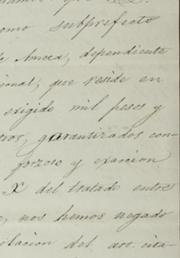 como subprefecto
de Ameca, dependiente
ional; que reside en
exigido mil pesos y
ros, garantizados con
forzoso y exaccion
X del tratado entre
, nos hemos negado
olacion del art. cita-